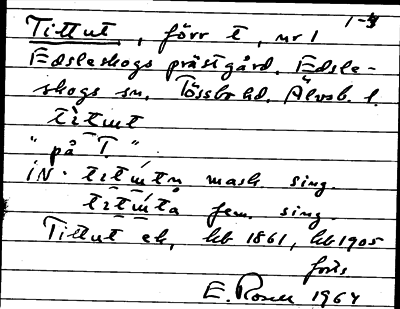 1-3
Tittut, förr t, nr 1
Edsleskogs prästgård. Edsle-
skogs sn. Tössbo hd. Älvsb. l.
tìtɯt
"på T."
iN. tɪtɯtn mask. sing.
tɪtɯta fem. sing.
Tittut ek, hb 1861, hb 1905
E. Rosell 1964